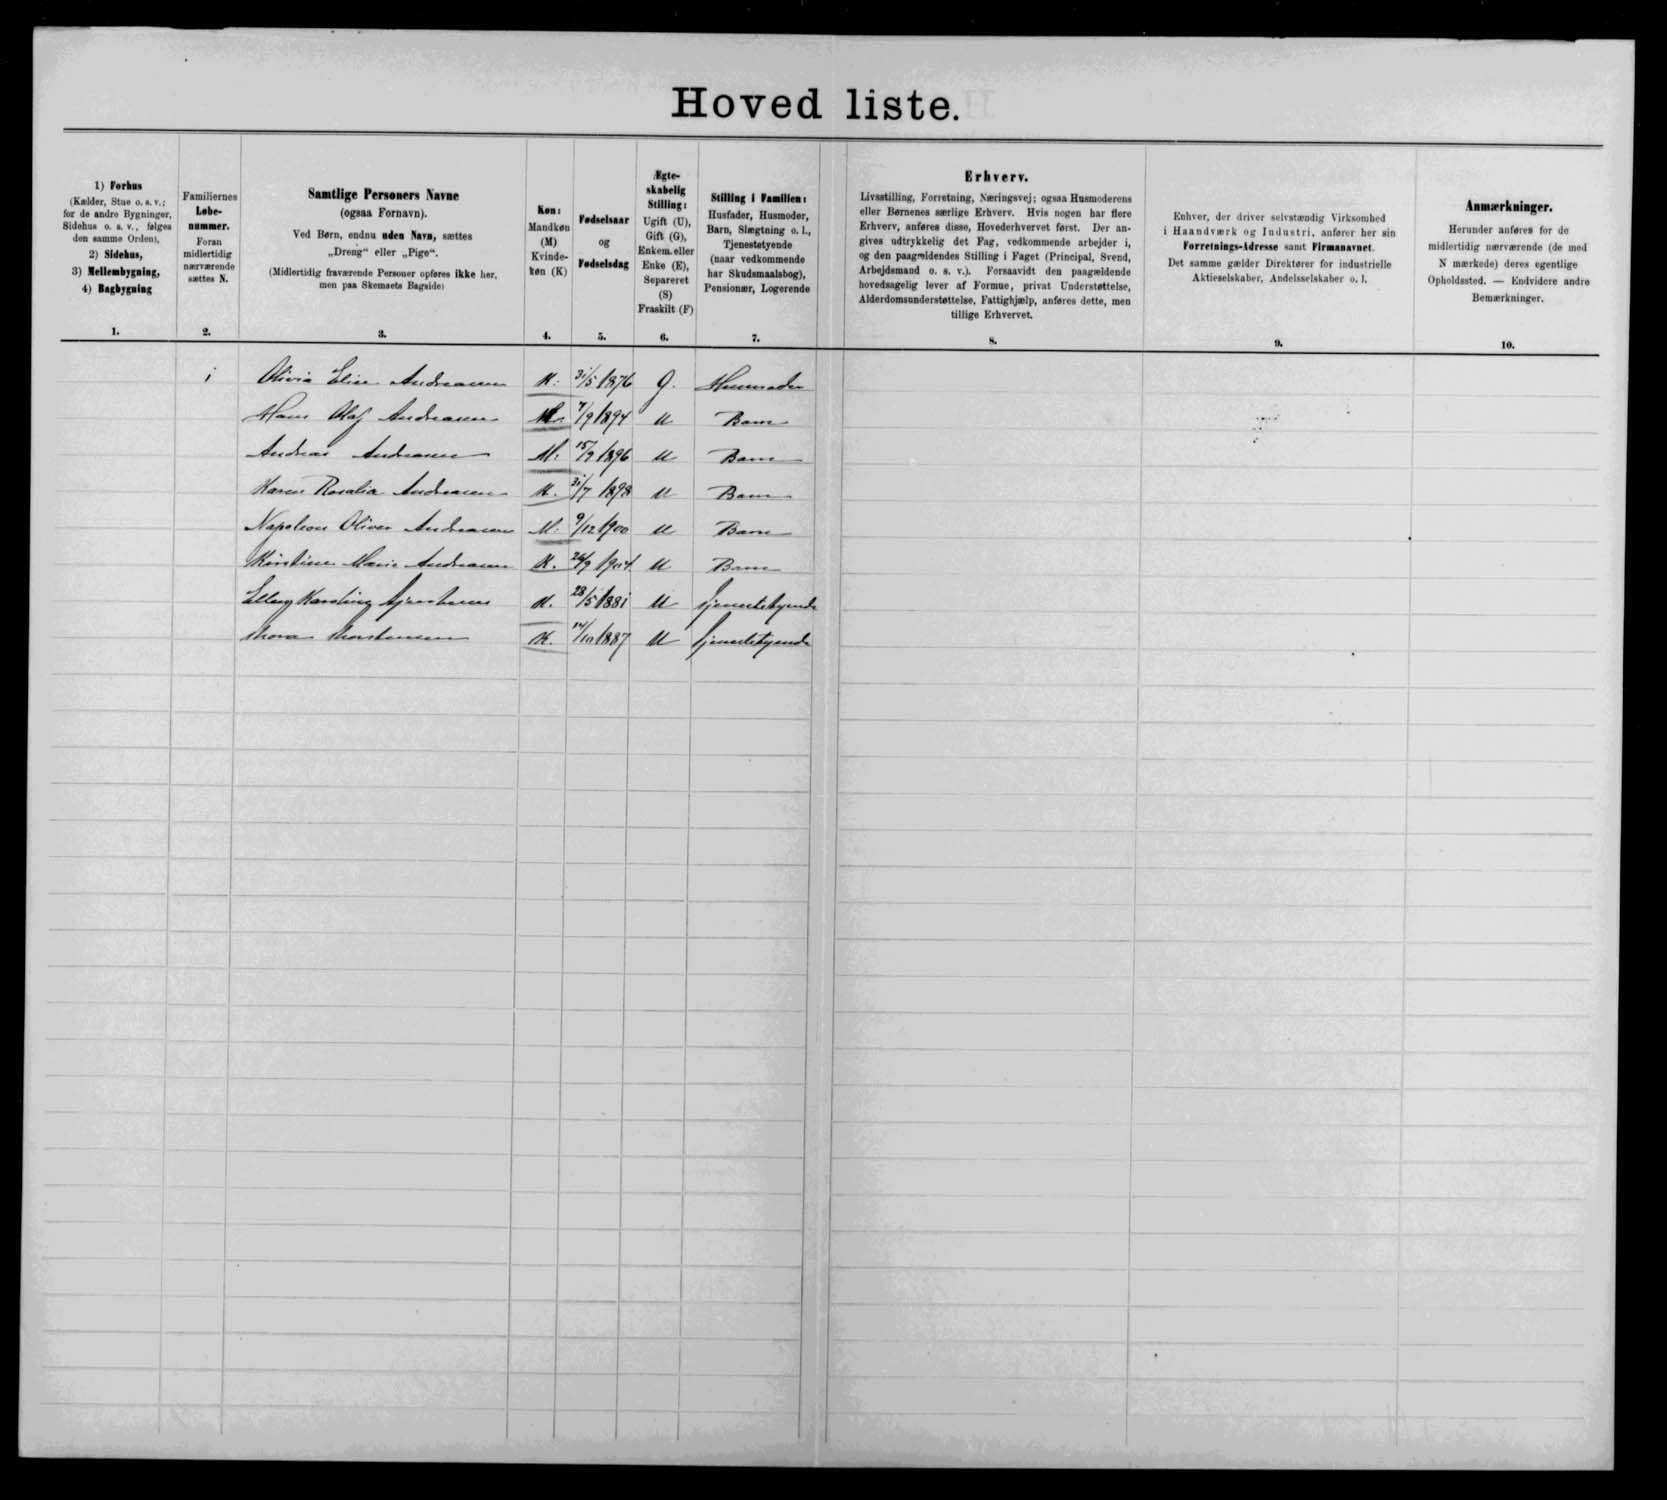 Hoved liste.
1) Forhus
(Kælder, Stue o. s. v.;
for de andre Bygninger,
Sidehus o. s. v., følges
den samme Orden),
2) Sidehus,
3) Mellembygning,
4) Bagbygning
1.
Familiernes
Løbe-
nummer.
Foran
midlertidig
nærværende
sættes N.
2.
Samtlige Personers Navne
(ogsaa Fornavn).
Ved Børn, endnu uden Navn, sættes
„Dreng“ eller „Pige“.
(Midlertidig fraværende Personer opføres ikke her,
men paa Skemaets Bagside)
3.
Køn:
Mandkøn
(M)
Kvinde-
køn (K)
4.
Fødselsaar
og
Fødselsdag
5.
Ægte-
skabelig
Stilling:
Ugift (U),
Gift (G),
Enkem. eller
Enke (E),
Separeret
(S)
Fraskilt (F)
6.
Stilling i Familien:
Husfader, Husmoder,
Barn, Slægtning o. l.,
Tjenestetyende
(naar vedkommende
har Skudsmaalsbog),
Pensionær, Logerende
7.
Erhverv.
Livsstilling, Forretning, Næringsvej; ogsaa Husmoderens
eller Børnenes særlige Erhverv. Hvis nogen har flere
Erhverv, anføres disse, Hovederhvervet først. Der an-
gives udtrykkelig det Fag, vedkommende arbejder i,
og den paagældendes Stilling i Faget (Principal, Svend,
Arbejdsmand o. s. v.). Forsaavidt den paagældende
hovedsagelig lever af Formue, privat Understøttelse,
Alderdomsunderstøttelse, Fattighjælp, anføres dette, men
tillige Erhvervet.
8.
Enhver, der driver selvstændig Virksomhed
i Haandværk og Industri, anfører her sin
Forretnings-Adresse samt Firmanavnet.
Det samme gælder Direktører for industrielle
Aktieselskaber, Andelsselskaber o. l.
9.
Anmærkninger.
Herunder anføres for de
midlertidig nærværende (de med
N mærkede) deres egentlige
Opholdssted. — Endvidere andre
Bemærkninger.
10.
1 Olivia Elise Andreasen K. 31/5 1876 G. Husmoder
Hans Olaf Andreasen M. 7/9 1894 U Barn
Andreas Andreasen M. 15/9 1896 U Barn
Karen Rosalia Andreasen K. 31/7 1898 U Barn
Napoleon Oliver Andreasen M. 9/12 1900 U Barn
Kirstine Marie Andreasen K. 26/9 1904 U Barn
K. 28/5 1881 U Tjenestetyende
Thora Thorstensen K. 14/10 1887 U Tjenestetyende